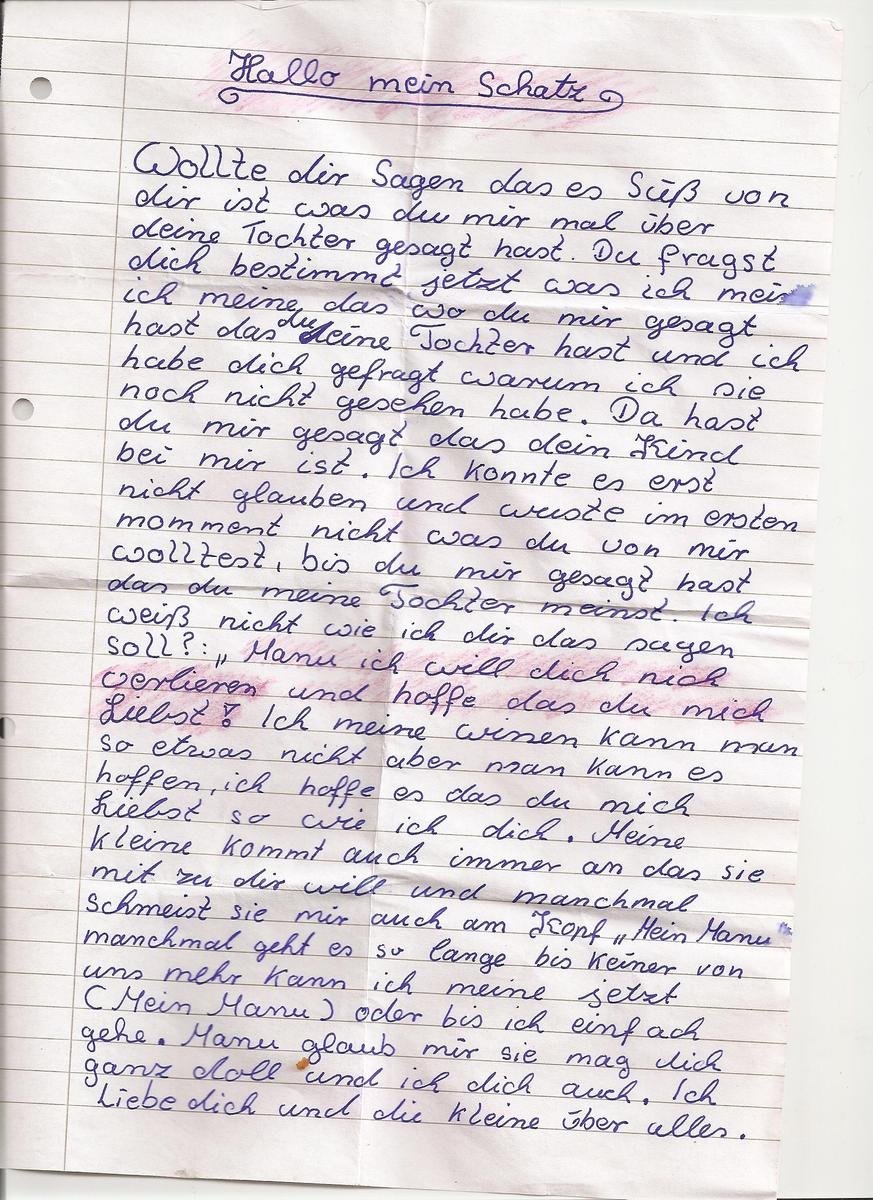 Hallo mein Schatz
Wollte dir Sagen das es Süß von
dir ist was du mir mal über
deine Tochter gesagt hast. Du fragst
dich bestimmt jetzt was ich mein
ich meine das wo du mir gesagt
hast das du deine Tochter hast und ich
habe dich gefragt warum ich sie
noch nicht gesehen habe. Da hast
du mir gesagt das dein Kind
bei mir ist. Ich konnte es erst
nicht glauben und wuste im ersten
momment nicht was du von mir
wolltest, bis du mir gesagt hast
das du meine Tochter meinst. Ich
weiß nicht wie ich dir das sagen
soll?: „Manu ich will dich nich
verlieren und hoffe das du mich
Liebst? Ich meine wissen kann man
so etwas nicht aber man kann es
hoffen, ich hoffe es das du mich
Liebst so wie ich dich. Meine
Kleine kommt auch immer an das sie
mit zu dir will und manchmal
schmeist sie mir auch am Kopf „Mein Manu"
manchmal geht es so lange bis keiner von
uns mehr kann ich meine jetzt
(Mein Manu) oder bis ich einfach
gehe. Manu glaub mir sie mag dich
ganz doll und ich dich auch. Ich
Liebe dich und die Kleine über alles.